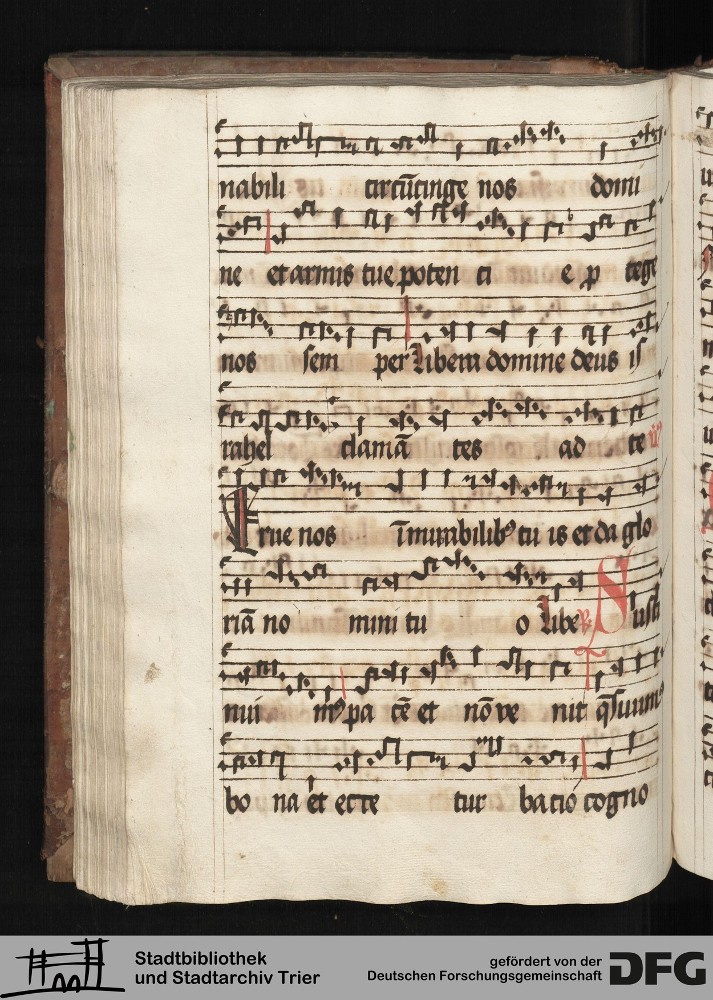 nabili circūcinge nos domi
ne et armis tue poten ti e p tege
nos sem per Libera domine deus is
rahel clamā tes ad te
Erue nos ī mirabilib⁹ tu is et da glo
riā no mini tu o Libe Susti
nui m⁹ pa cē et nō ve nit q̄siuim⁹
bo na et ecce tur batio cogno
Stadtbibliothek
und Stadtarchiv Trier
gefördert von der
Deutschen Forschungsgemeinschaft
DFG